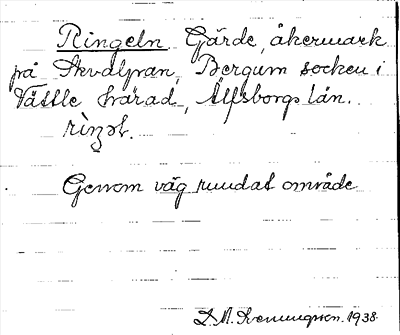 Ringeln Gärde, åkermark
på Skvalpran, Bergum socken i
Vättle härad, Älfsborgs län.
Genom väg rundat område
1938